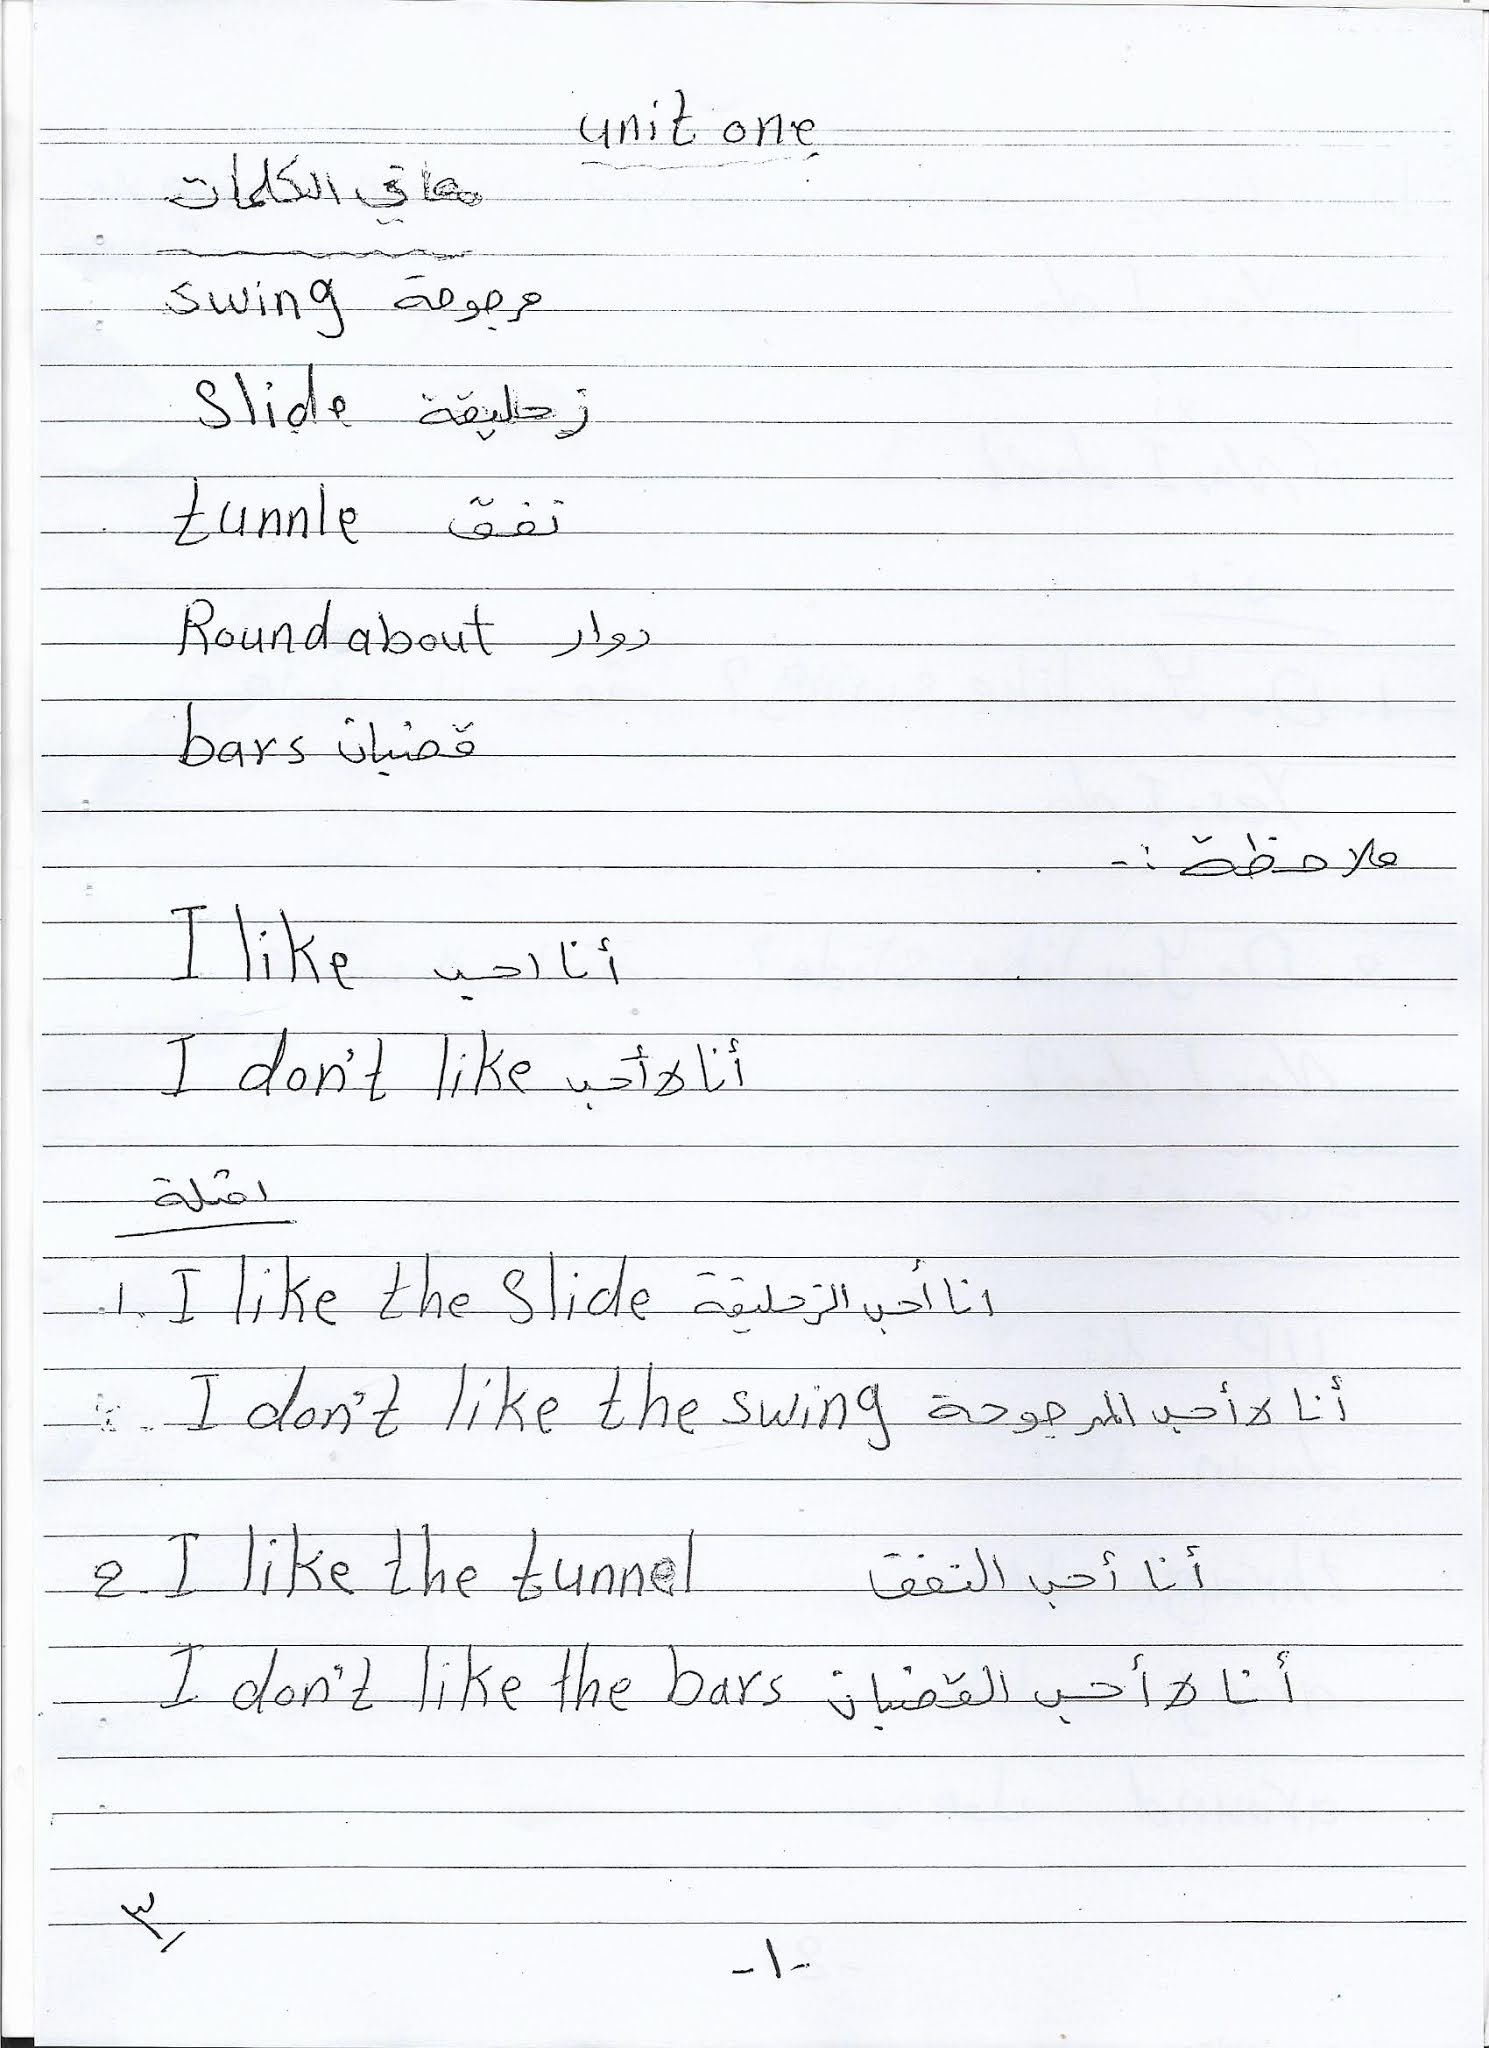 unit one
معاني الكلمات
swing مرجوحة
Slide زحليقة
tunnle نفق
Roundabout دوار
bars قضبان
ملاحظة :-
I like أنا احب
I don't like أنا لا أحب
امثلة
1. I like the Slide انا أحب الزحليقة
I don't like the swing أنا لا أحب المرجوحة
2. I like the tunnel أنا أحب النفق
I don't like the bars أنا لا أحب القضبان
٣
-١-